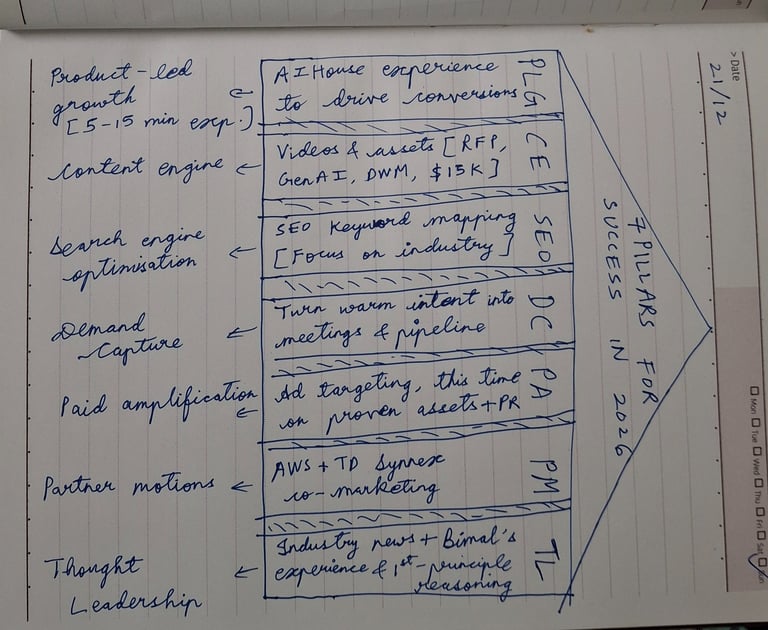 > Date
21/12
Mon Tue Wed Thu Fri Sat Sun
7 PILLARS FOR
SUCCESS IN 2026
PLG
AI House experience
to drive conversions
Product-led
growth
[5-15 min exp.]
CE
Videos & assets [RFP,
GenAI, DWM, $15K]
Content engine
SEO
SEO Keyword mapping
[Focus on industry]
Search engine
optimisation
DC
Turn warm intent into
meetings & pipeline
Demand
Capture
PA
Ad targeting, this time
on proven assets + PR
Paid amplification
PM
AWS + TD Synnex
co-marketing
Partner motions
TL
Industry news + Bimal's
experience & 1st-principle
reasoning
Thought
Leadership